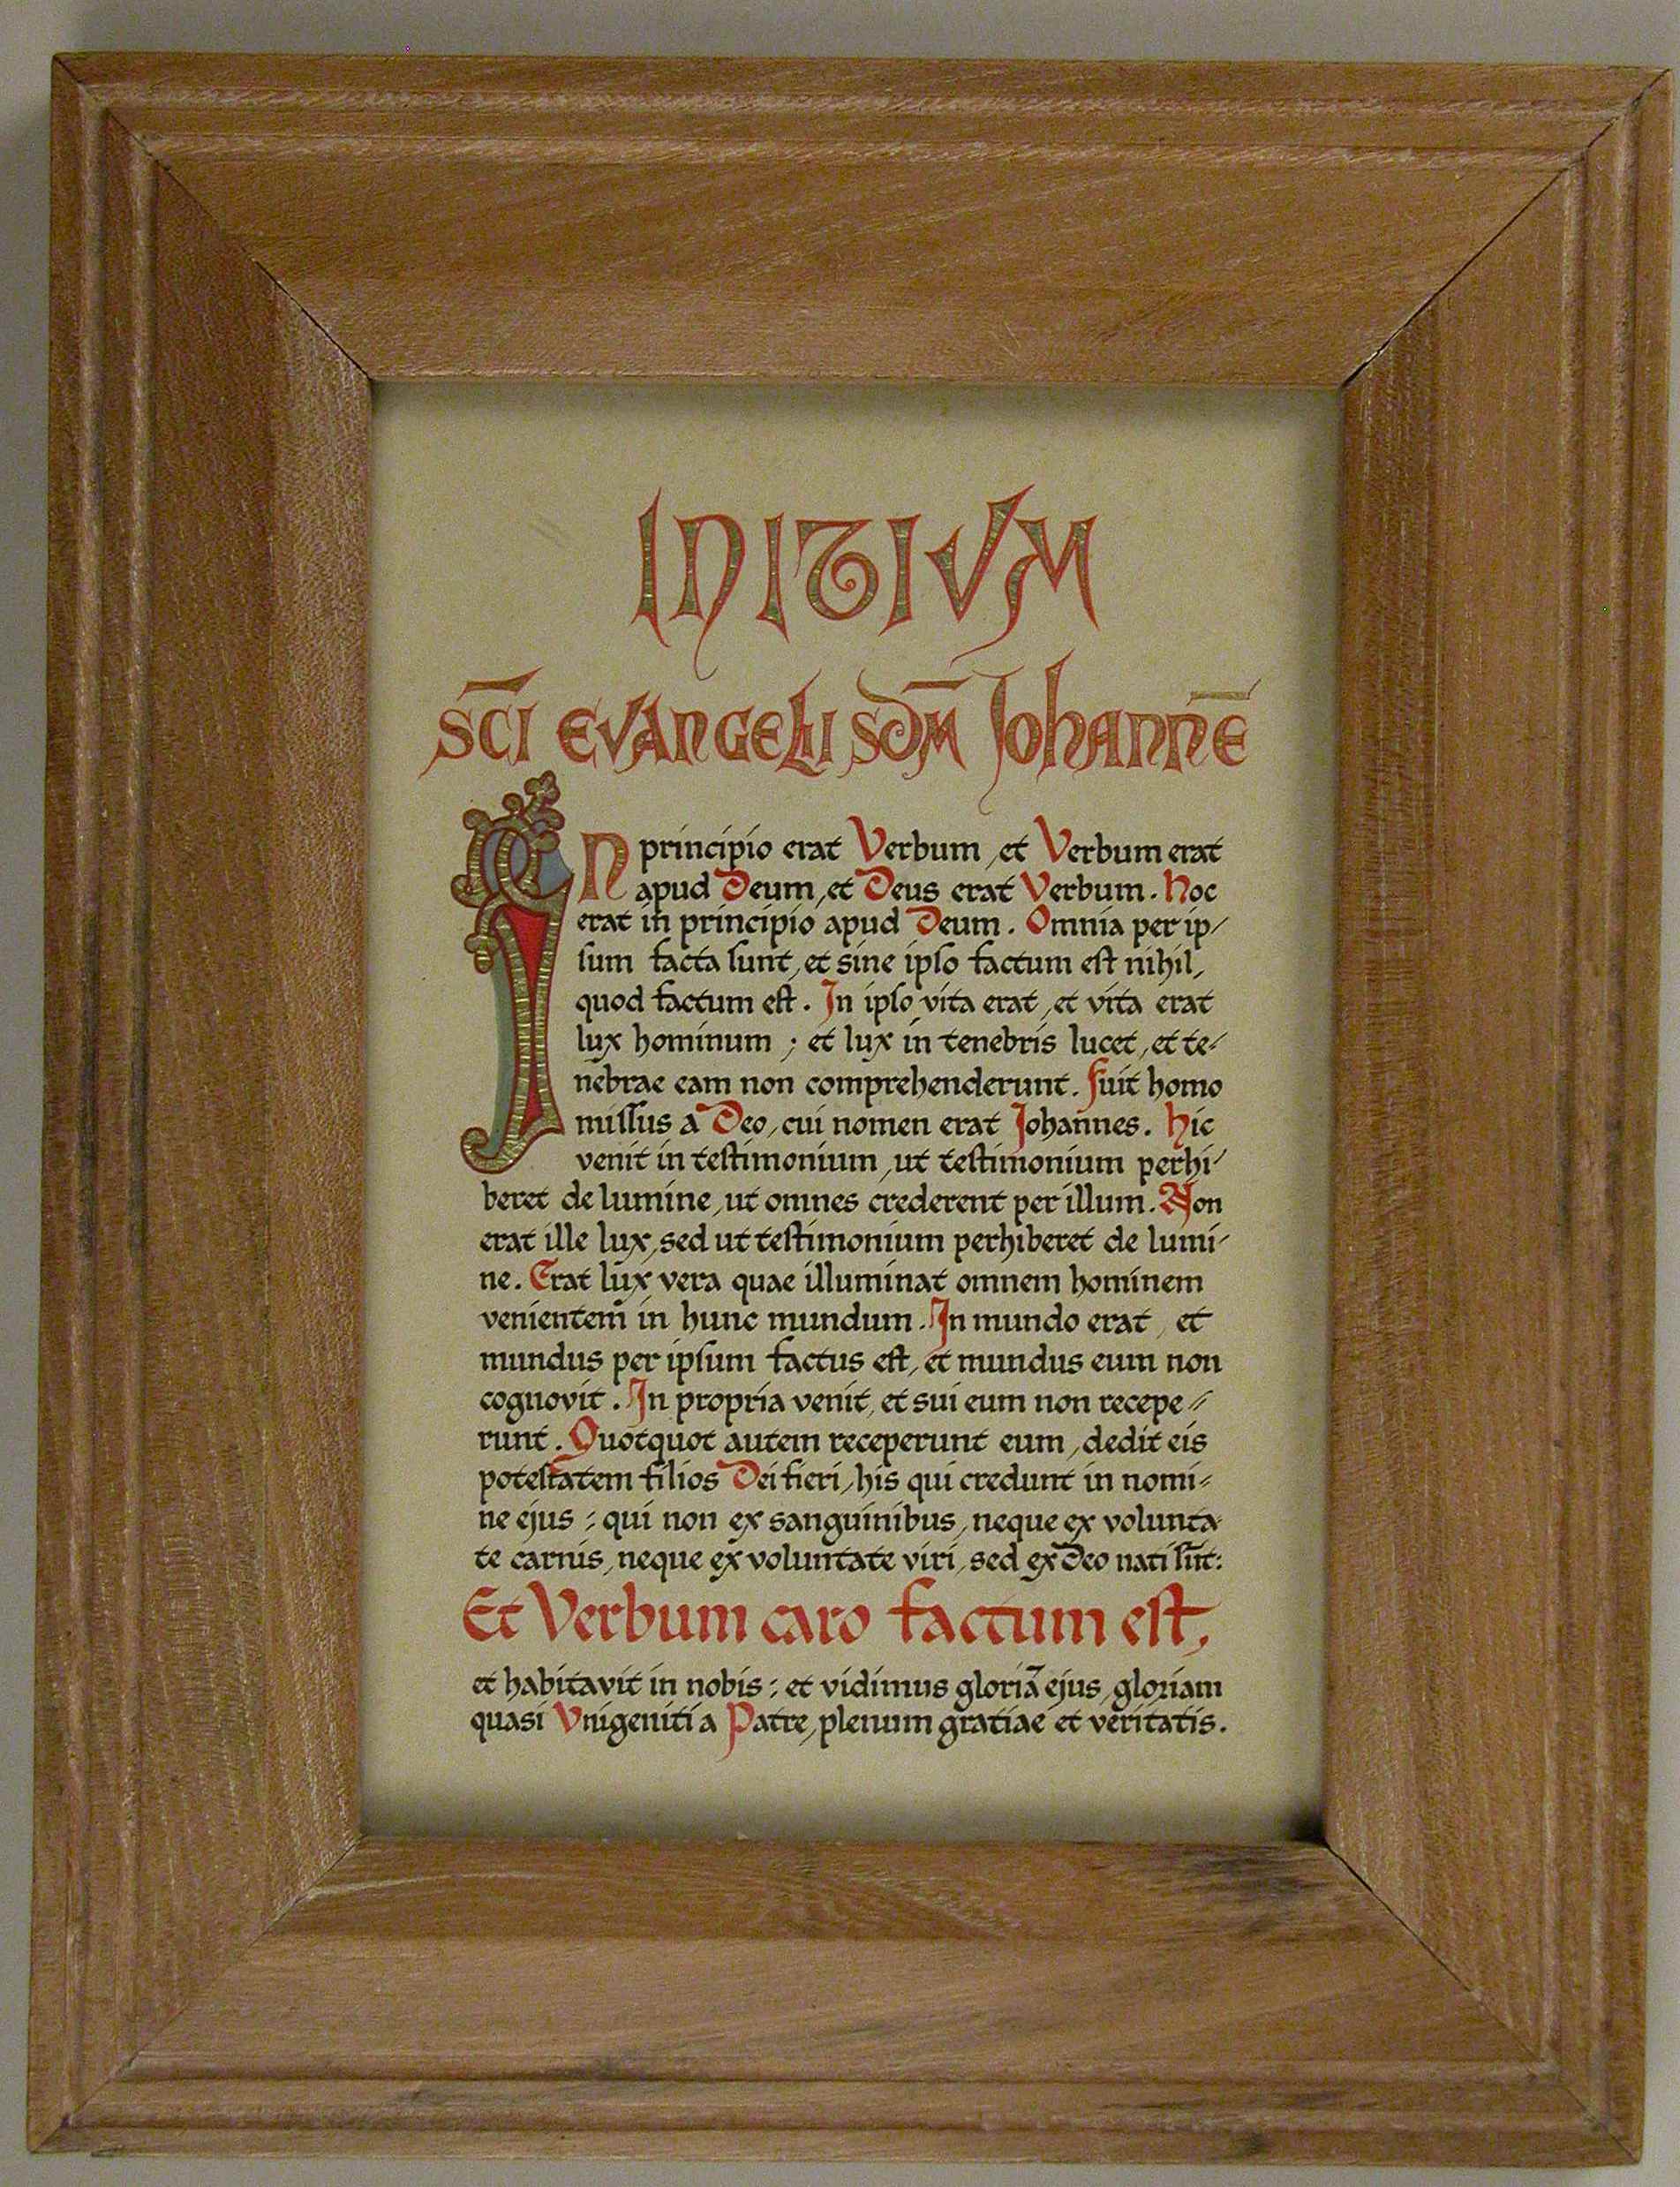 INITIUM
SC̄I EVANGELII SD̄M JOHANNĒ
IN principio erat Verbum, et Verbum erat
apud Deum, et Deus erat Verbum. Hoc
erat in principio apud Deum. Omnia per ip-
ſum facta ſunt, et sine ipſo factum eſt nihil,
quod factum eſt. In ipſo vita erat, et vita erat
lux hominum ; et lux in tenebris lucet, et te-
nebrae eam non comprehenderunt. Fuit homo
miſſus a Deo, cui nomen erat Johannes. Hic
venit in teſtimonium, ut teſtimonium perhi-
beret de lumine, ut omnes crederent per illum. Non
erat ille lux, sed ut teſtimonium perhiberet de lumi-
ne. Erat lux vera quae illuminat omnem hominem
venientem in hunc mundum. In mundo erat, et
mundus per ipſum factus eſt, et mundus eum non
cognovit. In propria venit, et sui eum non recepe-
runt. Quotquot autem receperunt eum, dedit eis
poteſtatem filios Dei fieri, his qui credunt in nomi-
ne ejus : qui non ex sanguinibus, neque ex volunta-
te carnis, neque ex voluntate viri, sed ex Deo nati ſūt:
Et Verbum caro factum eſt,
et habitavit in nobis : et vidimus gloriā ejus, gloriam
quasi Unigeniti a Patre, plenum gratiae et veritatis.